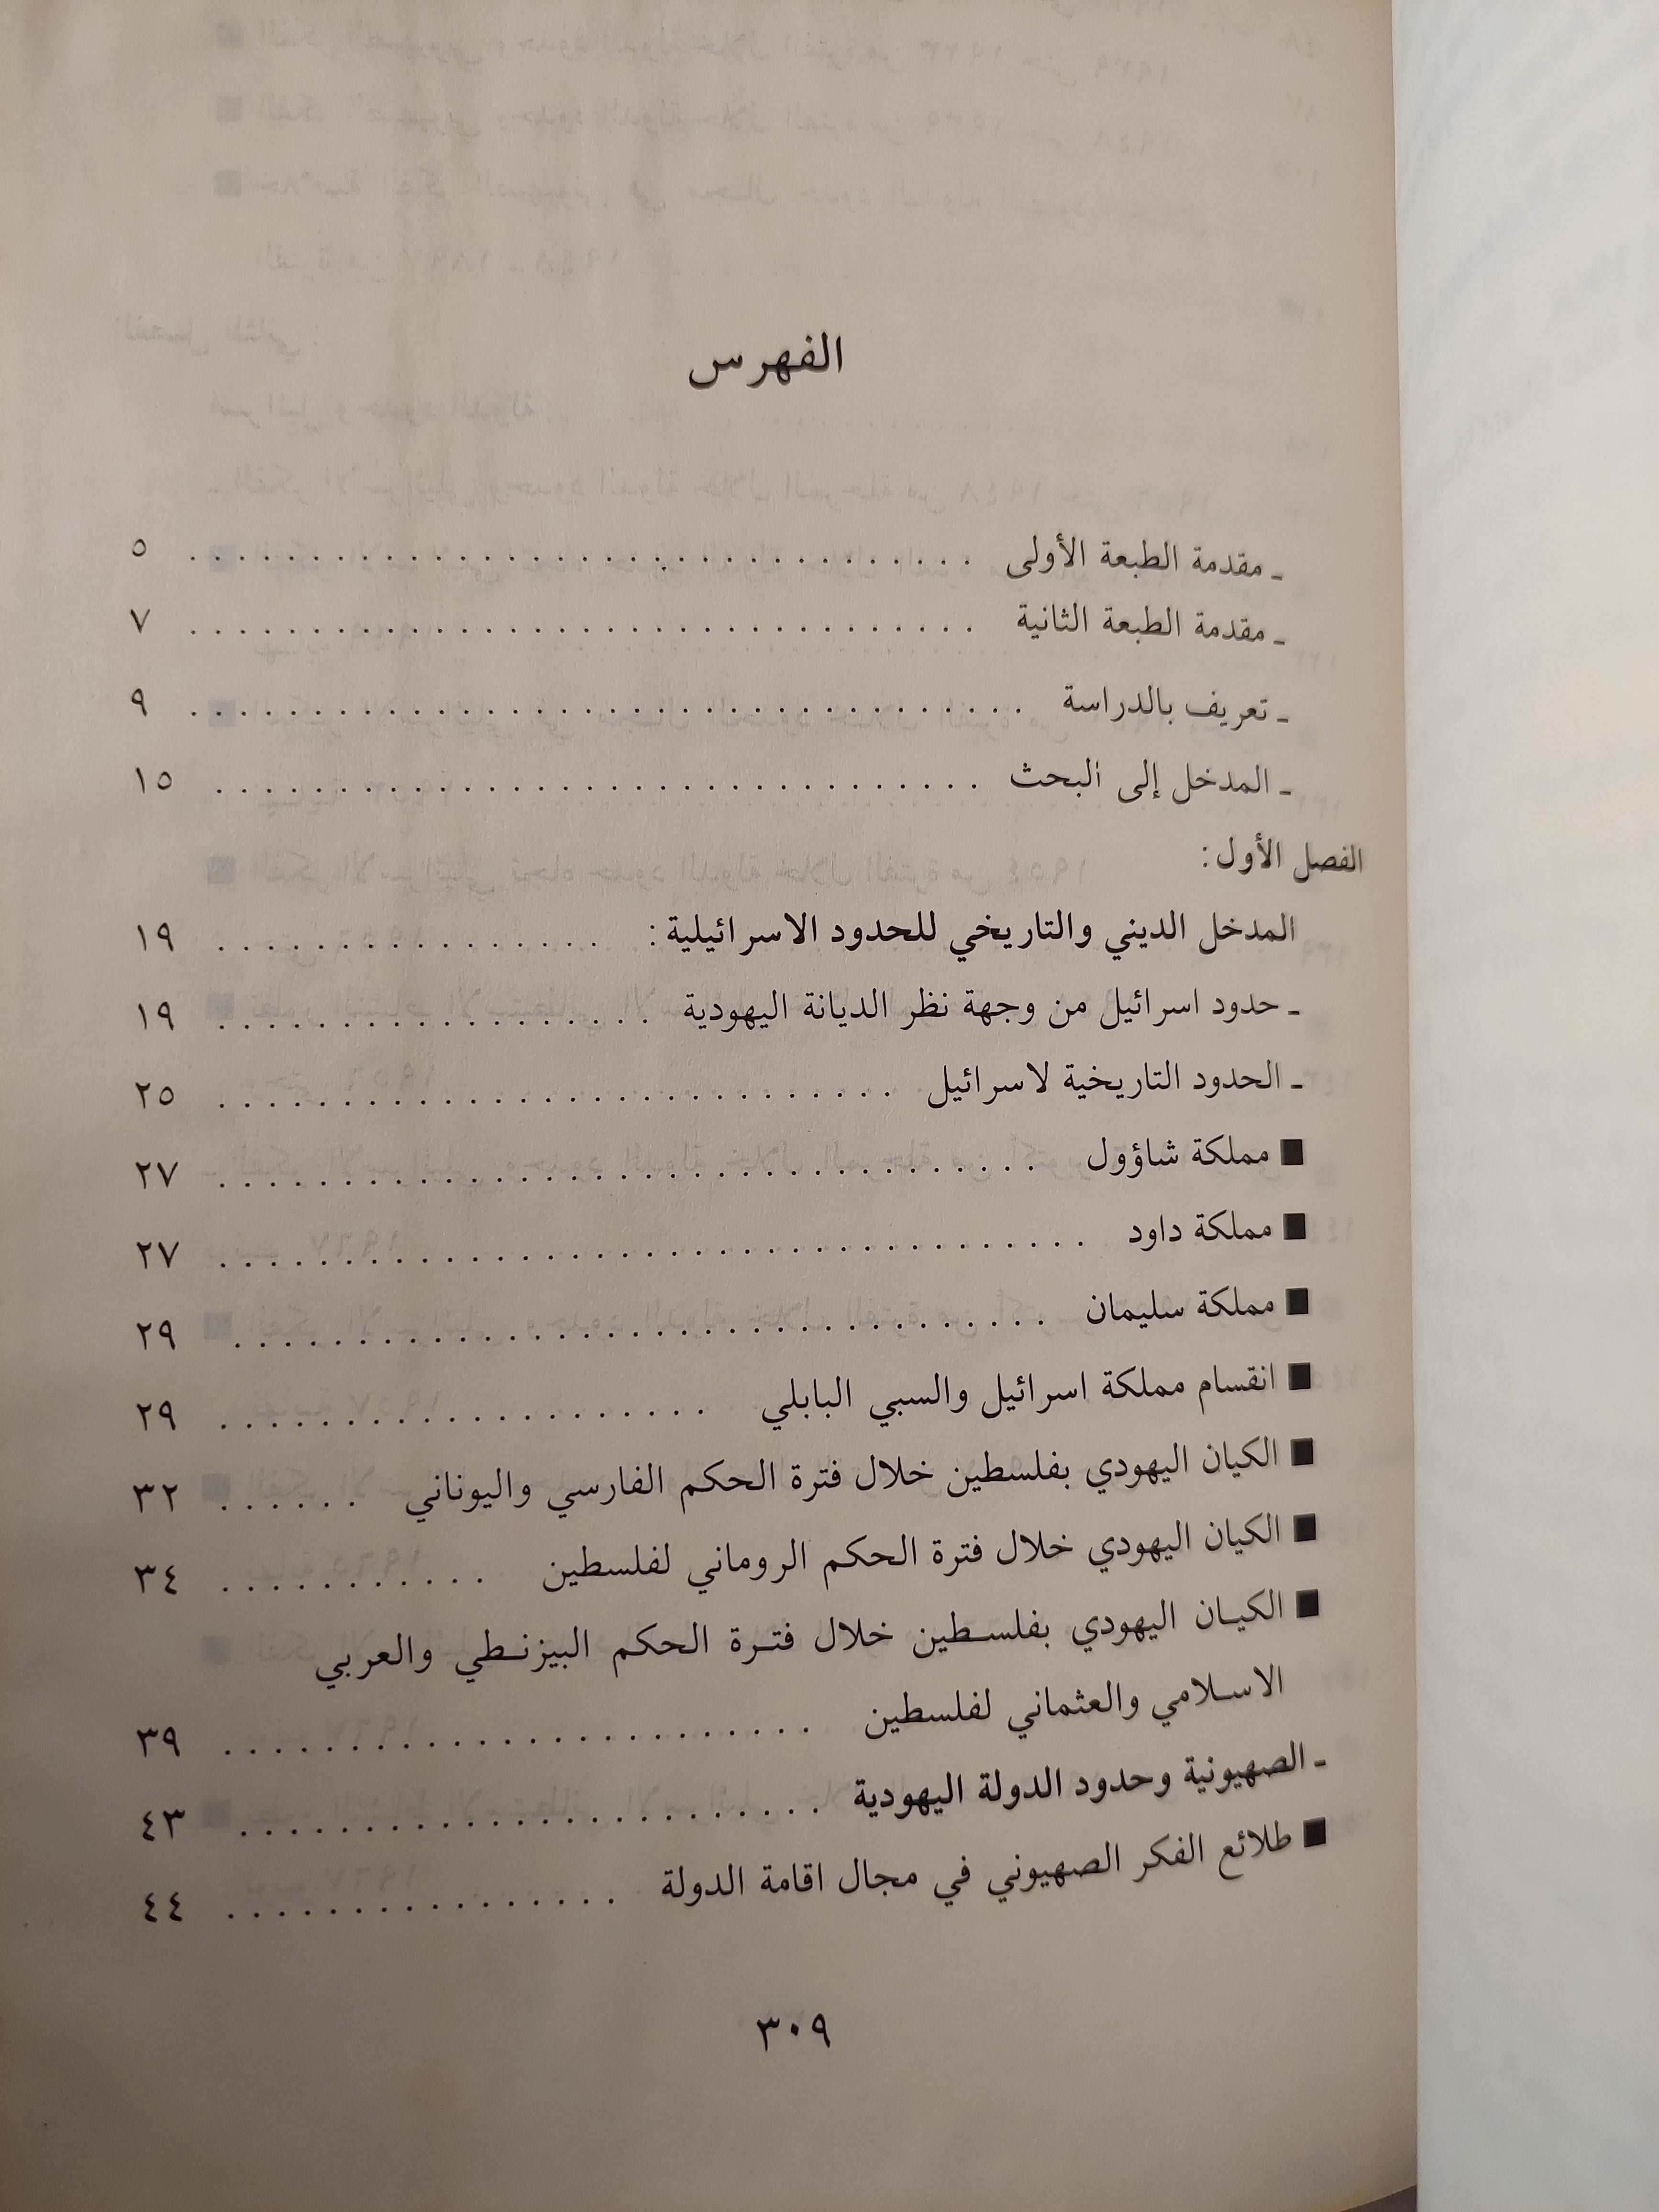 الفهرس
ـ مقدمة الطبعة الأولى . . . . . . . . . . . . . . . . . . . . ٥
ـ مقدمة الطبعة الثانية . . . . . . . . . . . . . . . . . . . . ٧
ـ تعريف بالدراسة . . . . . . . . . . . . . . . . . . . . ٩
ـ المدخل إلى البحث . . . . . . . . . . . . . . . . . . . . ١٥
الفصل الأول:
المدخل الديني والتاريخي للحدود الاسرائيلية: . . . . . . . . . . . . ١٩
ـ حدود اسرائيل من وجهة نظر الديانة اليهودية . . . . . . . . . . . . ١٩
ـ الحدود التاريخية لاسرائيل . . . . . . . . . . . . . . . . . . ٢٥
■ مملكة شاؤول . . . . . . . . . . . . . . . . . . . . ٢٧
■ مملكة داود . . . . . . . . . . . . . . . . . . . . ٢٧
■ مملكة سليمان . . . . . . . . . . . . . . . . . . . . ٢٩
■ انقسام مملكة اسرائيل والسبي البابلي . . . . . . . . . . . . . . ٢٩
■ الكيان اليهودي بفلسطين خلال فترة الحكم الفارسي واليوناني . . . . . . ٣٢
■ الكيان اليهودي خلال فترة الحكم الروماني لفلسطين . . . . . . . . . . . ٣٤
■ الكيـان اليهودي بفلسـطين خلال فتـرة الحكم البيزنـطي والعربي
الاسـلامي والعثماني لفلسطين . . . . . . . . . . . . . . . . ٣٩
ـ الصهيونية وحدود الدولة اليهودية . . . . . . . . . . . . . . . . ٤٣
■ طلائع الفكر الصهيوني في مجال اقامة الدولة . . . . . . . . . . . . ٤٤
٣٠٩